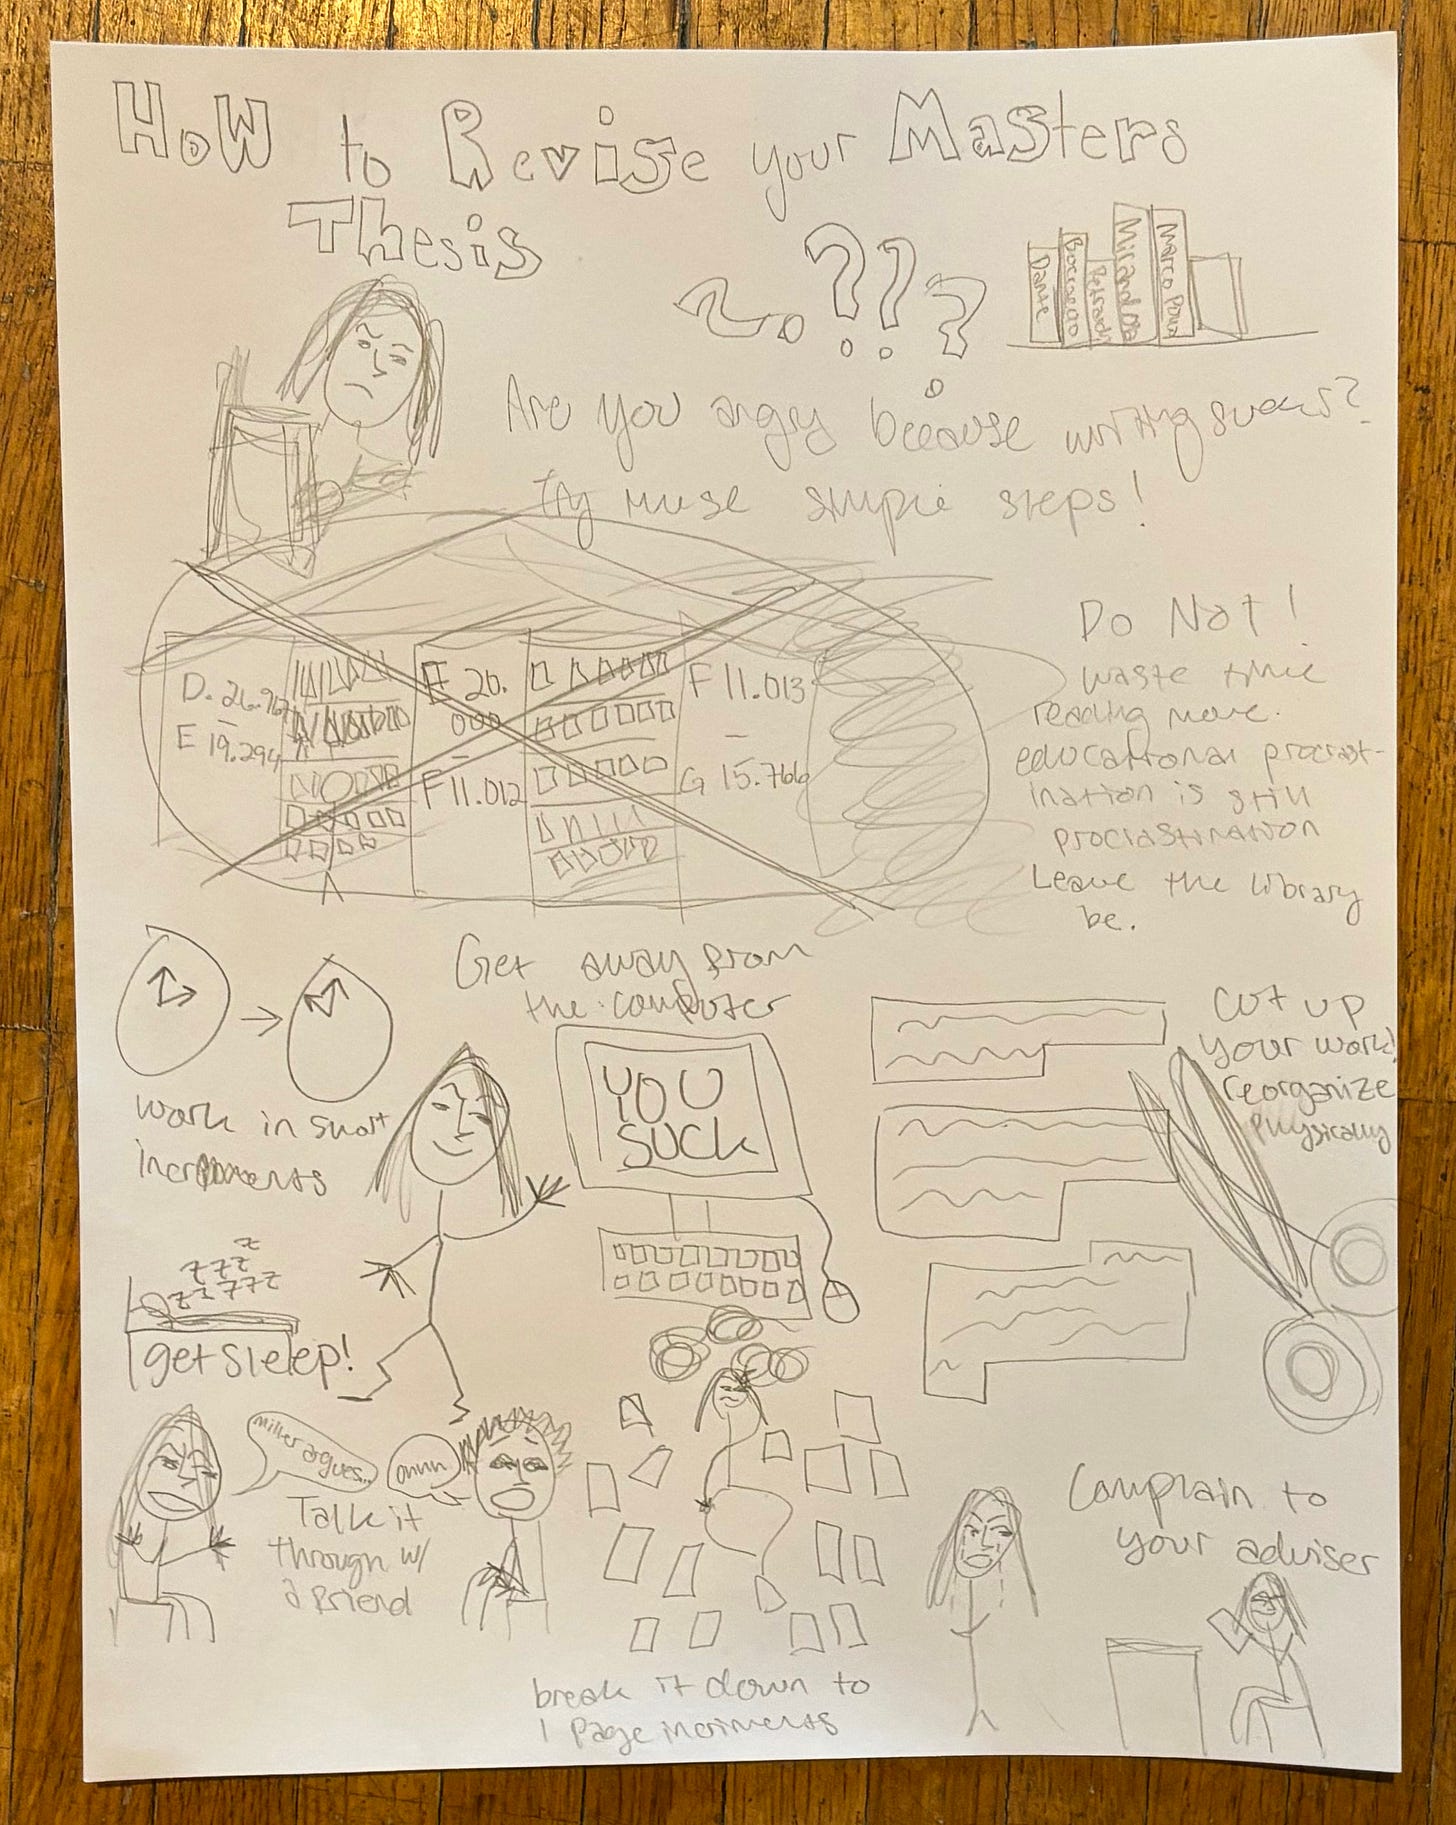 HoW to Revise your Masters
Thesis
????
Dante
Boccaccio
Petrarch
Mirandola
Marco Polo
Are you angry because writing sucks?
Try these simple steps!
D. 26.767
–
E 19.294
E 20.
000
–
F 11.012
F 11.013
–
G 15.766
Do Not!
waste time
reading more.
educational procrast-
ination is still
procrastination
Leave the library
be.
work in short
increments
Get away from
the computer
YOU
SUCK
cut up
your work!
reorganize
physically
z
z z z
z z z z z z
get sleep!
Miller argues...
Talk it
through w/
a friend
break it down to
1 Page incriments
Complain to
your adviser